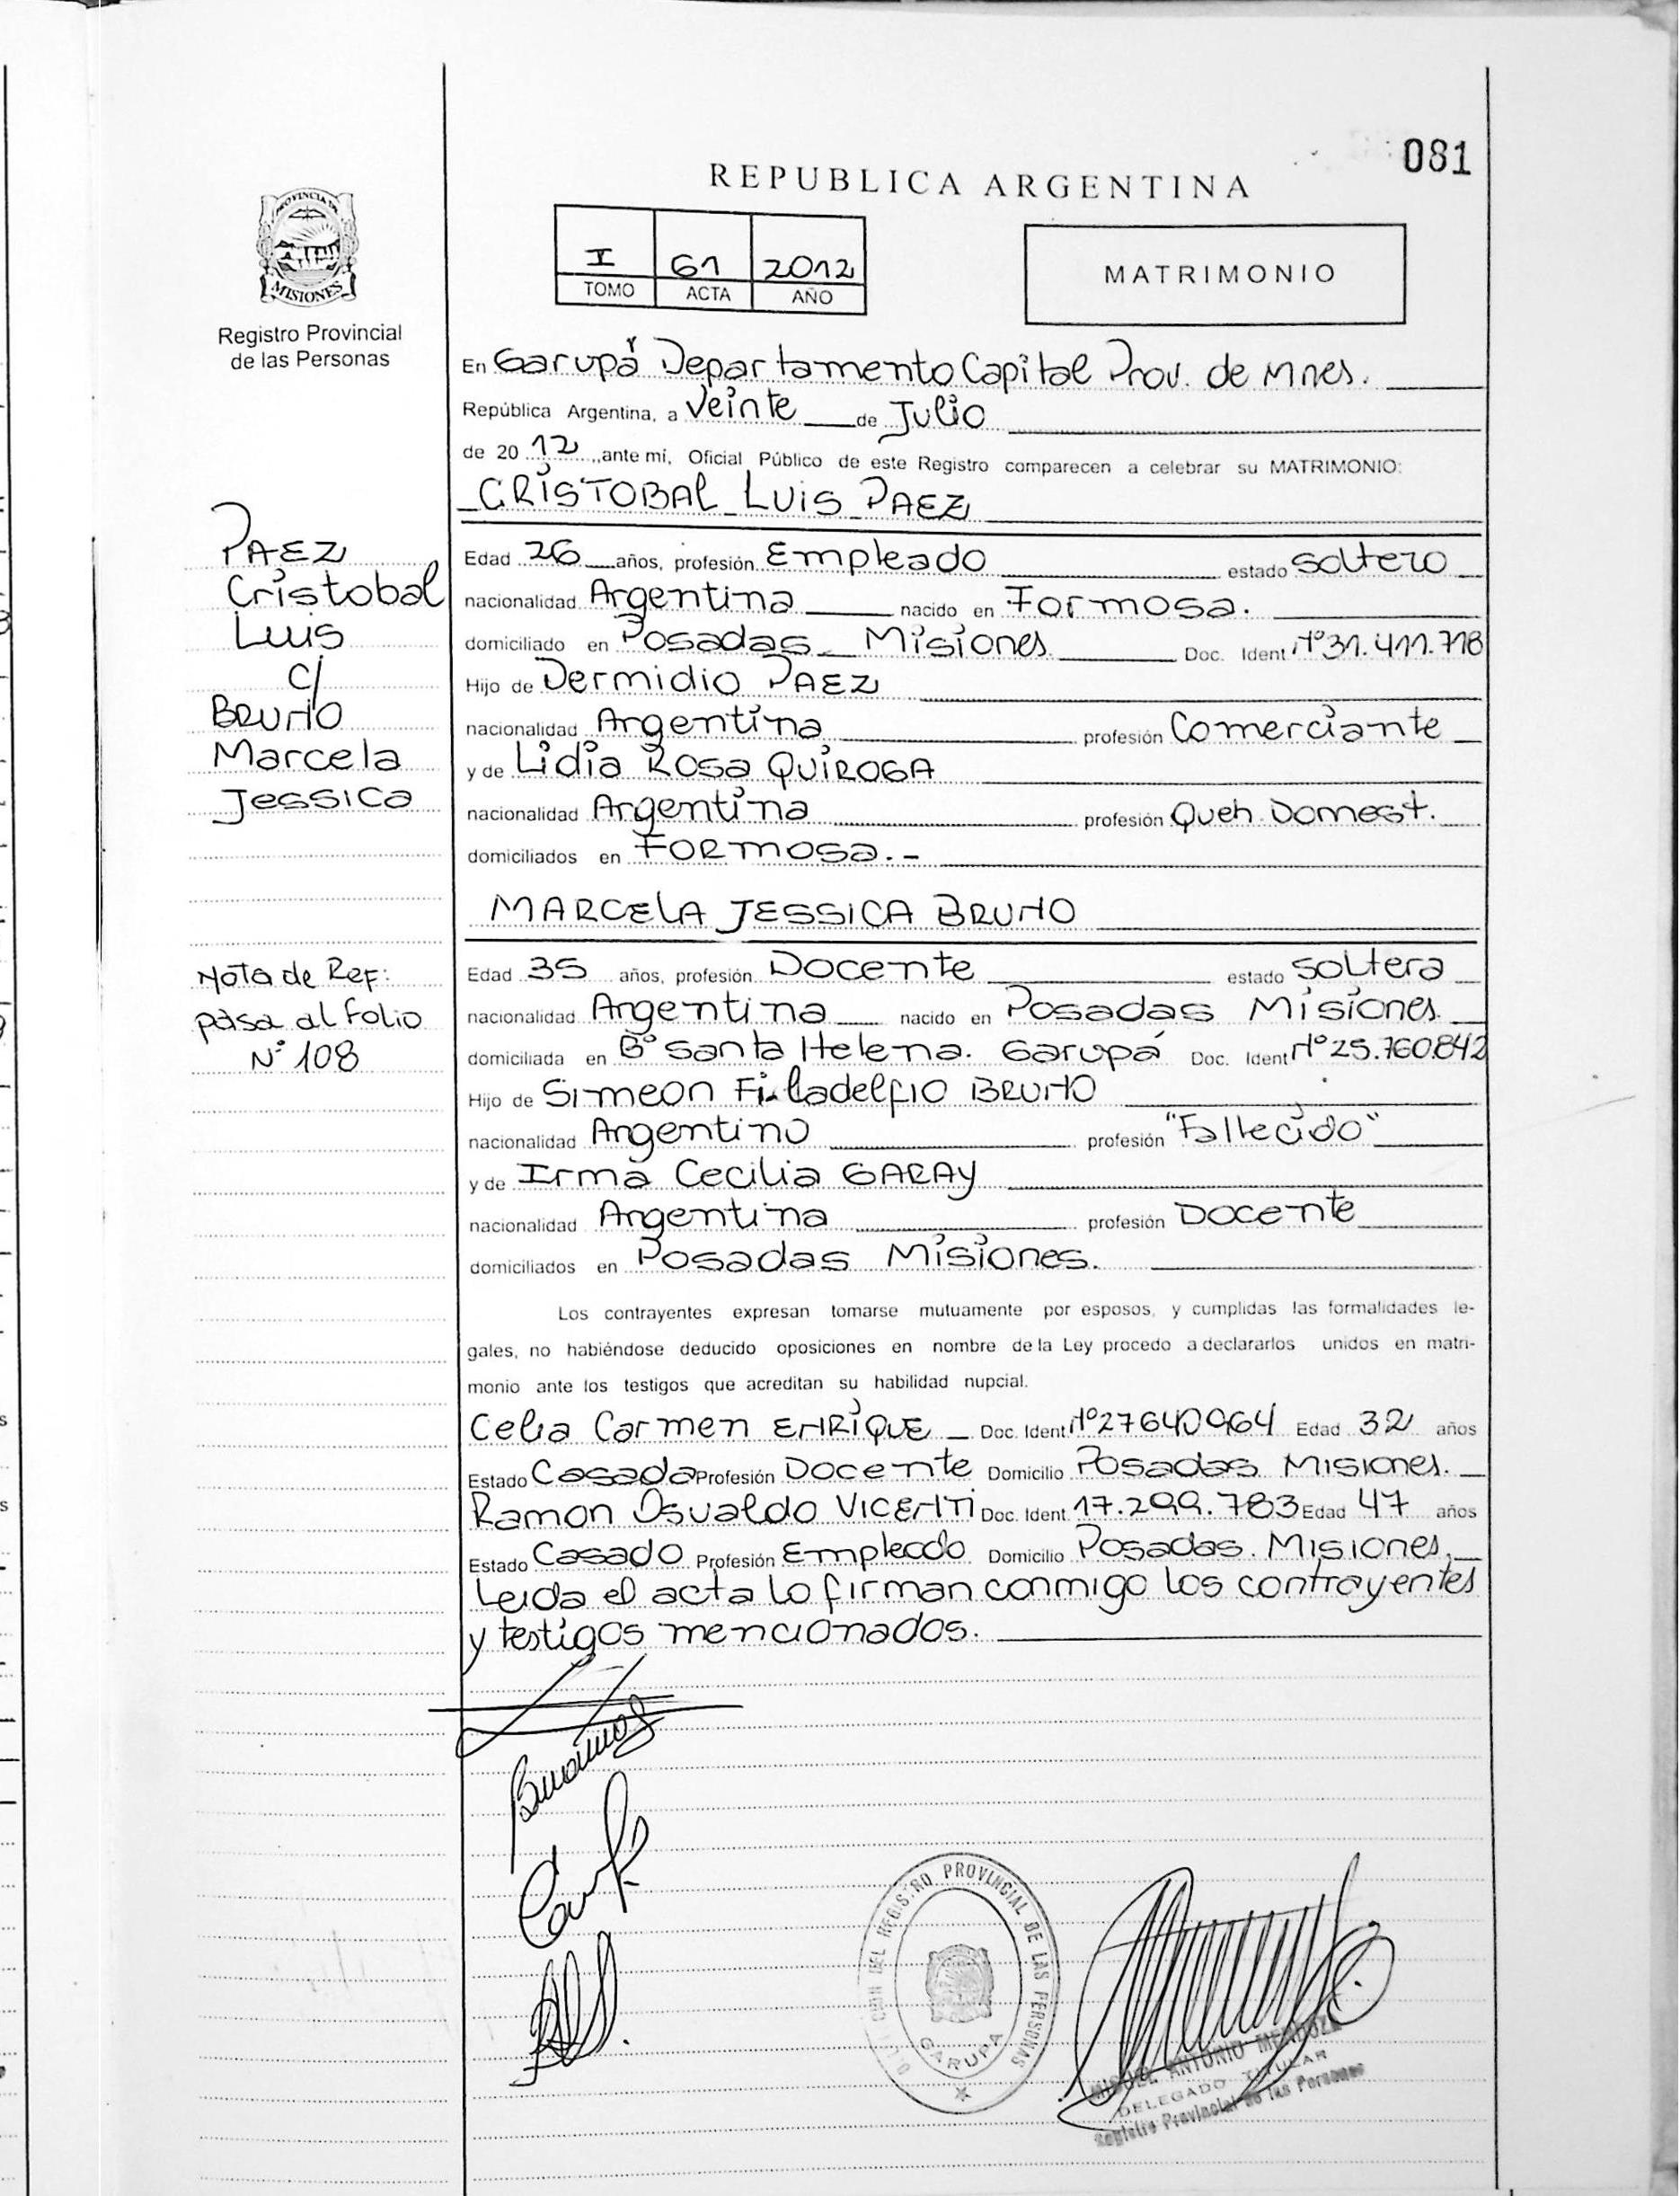 081
REPUBLICA ARGENTINA
PROVINCIA DE
MISIONES
Registro Provincial
de las Personas
I 61 2012
TOMO ACTA AÑO
MATRIMONIO
En Garupá Departamento Capital Prov. de Mnes.
República Argentina, a Veinte de Julio
de 20 12 ,,ante mí, Oficial Público de este Registro comparecen a celebrar su MATRIMONIO:
CRISTOBAL LUIS PAEZ
PAEZ
Cristobal
Luis
c/
BRUNO
Marcela
Jessica
Edad 26 años, profesión Empleado estado soltero
nacionalidad Argentina nacido en Formosa.
domiciliado en Posadas Misiones Doc. Ident N° 31.411.718
Hijo de Dermidio PAEZ
nacionalidad Argentina profesión Comerciante
y de Lidia Rosa QUIROGA
nacionalidad Argentina profesión Queh Domest.
domiciliados en Formosa.-
MARCELA JESSICA BRUNO
Nota de Ref:
pasa al folio
N° 108
Edad 35 años, profesión Docente estado soltera
nacionalidad Argentina nacido en Posadas Misiones
domiciliada en B° Santa Helena. Garupá Doc. Ident N° 25.760.842
Hijo de Simeon Filadelfio BRUNO
nacionalidad Argentino profesión "Fallecido"
y de Irma Cecilia GARAY
nacionalidad Argentina profesión Docente
domiciliados en Posadas Misiones.
Los contrayentes expresan tomarse mutuamente por esposos, y cumplidas las formalidades le-
gales, no habiéndose deducido oposiciones en nombre de la Ley procedo a declararlos unidos en matri-
monio ante los testigos que acreditan su habilidad nupcial.
Celia Carmen ENRIQUE Doc. Ident N° 27640964 Edad 32 años
Estado Casada Profesión Docente Domicilio Posadas Misiones.
Ramon Osvaldo VICENTI Doc. Ident. 17.299.783 Edad 47 años
Estado Casado Profesión Empleado Domicilio Posadas. Misiones.
Leida el acta lo firman conmigo los contrayentes
y testigos mencionados.
DEL REGISTRO PROVINCIAL DE LAS PERSONAS
GARUPA
MIGUEL ANTONIO MENDOZA
DELEGADO TITULAR
Registro Provincial de las Personas